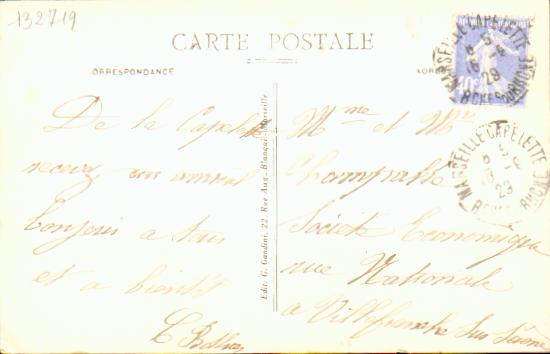 132719
CARTE POSTALE
ORRESPONDANCE
De la Capelette
recevez un amical
bonjour a tous
et a bientôt
Edit. G. Gandini, 22 Rue Aug. Blanqui - Marseille
Mme et Mr
Champalle
Societe Economique
rue Nationale
a Villefranche sur Saône
40c
MARSEILLE-CAPELETTE
29
BCHES-DU-RHONE
MARSEILLE-CAPELETTE
29
BCHES-DU-RHONE